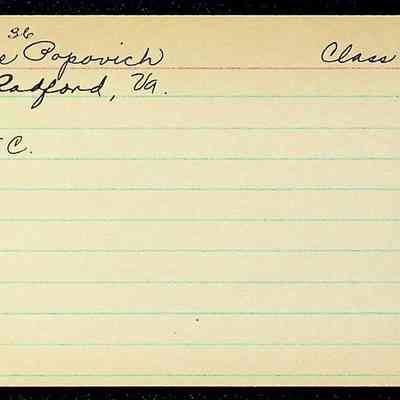 36
e Popovich Class
Radford, Va.
C.